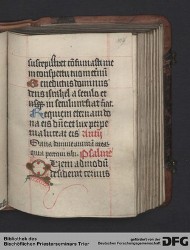 suscepisti et confirmasti me
in conspectu tuo in eternū
Benedictus dominus
deus israhel a seculo et
usq; in seculum fiat fiat.
Requiem eternam do
na eis dn̄e et lux perpe
tua luceat eis
Sana domine animā meā
quia peccaui tibi. Psalm̄
Quemadmodū
desiderat ceruus
Bibliothek des
Bischöflichen Priesterseminars Trier
gefördert von der
Deutschen Forschungsgemeinschaft
DFG